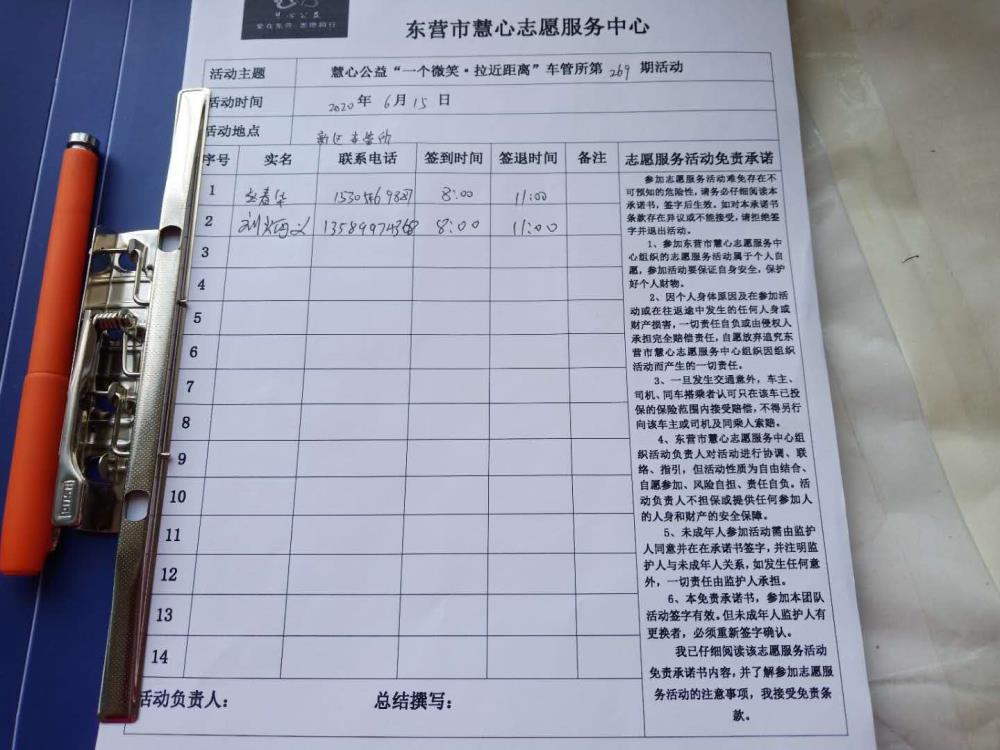 爱在东营 志愿同行
东营市慧心志愿服务中心
活动主题 慧心公益“一个微笑·拉近距离”车管所第269期活动
活动时间 2020年6月15日
活动地点 新区车管所
序号 实名 联系电话 签到时间 签退时间 备注 志愿服务活动免责承诺
1 8:00 11:00
2 13589974368 8:00 11:00
3
4
5
6
7
8
9
10
11
12
13
14
参加志愿服务活动难免存在不
可预知的危险性，请务必仔细阅读本
承诺书，签字后生效。如对本承诺书
条款存在异议或不能接受，请拒绝签
字并退出活动。
1、参加东营市慧心志愿服务中
心组织的志愿服务活动属于个人自
愿，参加活动要保证自身安全，保护
好个人财物。
2、因个人身体原因及在参加活
动或在往返途中发生的任何人身或
财产损害，一切责任自负或由侵权人
承担完全赔偿责任，自愿放弃追究东
营市慧心志愿服务中心组织因组织
活动而产生的一切责任。
3、一旦发生交通意外，车主、
司机、同车搭乘者认可只在该车已投
保的保险范围内接受赔偿，不得另行
向该车主或司机及同乘人索赔。
4、东营市慧心志愿服务中心组
织活动负责人对活动进行协调、联
络、指引，但活动性质为自由结合、
自愿参加、风险自担、责任自负。活
动负责人不担保或提供任何参加人
的人身和财产的安全保障。
5、未成年人参加活动需由监护
人同意并在在承诺书签字，并注明监
护人与未成年人关系，如发生任何意
外，一切责任由监护人承担。
6、本免责承诺书，参加本团队
活动签字有效。但未成年人监护人有
更换者，必须重新签字确认。
我已仔细阅读该志愿服务活动
免责承诺书内容，并了解参加志愿服
务活动的注意事项，我接受免责条
款。
活动负责人： 总结撰写：